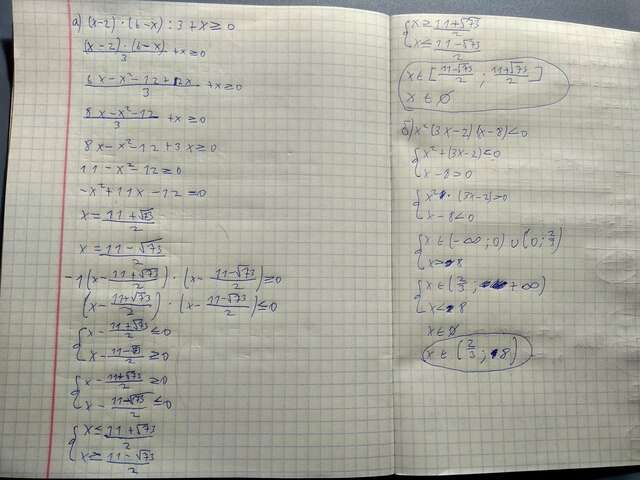 а) (x-2)·(6-x):3+x≥0
(x-2)·(6-x)/3 +x≥0
6x-x²-12+2x/3 +x≥0
8x-x²-12/3 +x≥0
8x-x²-12+3x≥0
11-x²-12≥0
-x²+11x-12=0
x=11+√73/2
x=11-√73/2
-1(x-11+√73/2)·(x-11-√73/2)≥0
(x-11+√73/2)·(x-11-√73/2)≤0
{x-11+√73/2≤0
x-11-√73/2≥0
{x-11+√73/2≥0
x-11-√73/2≤0
{x≤11+√73/2
x≥11-√73/2
{x≥11+√73/2
x≤11-√73/2
x∈[11-√73/2;11+√73/2]
x∈∅
б) x²(3x-2)(x-8)<0
{x²+(3x-2)<0
x-8>0
{x²·(3x-2)>0
x-8<0
{x∈(-∞;0)∪(0;2/3)
x>8
{x∈(2/3;+∞)
x<8
x∈∅
x∈(2/3;8)